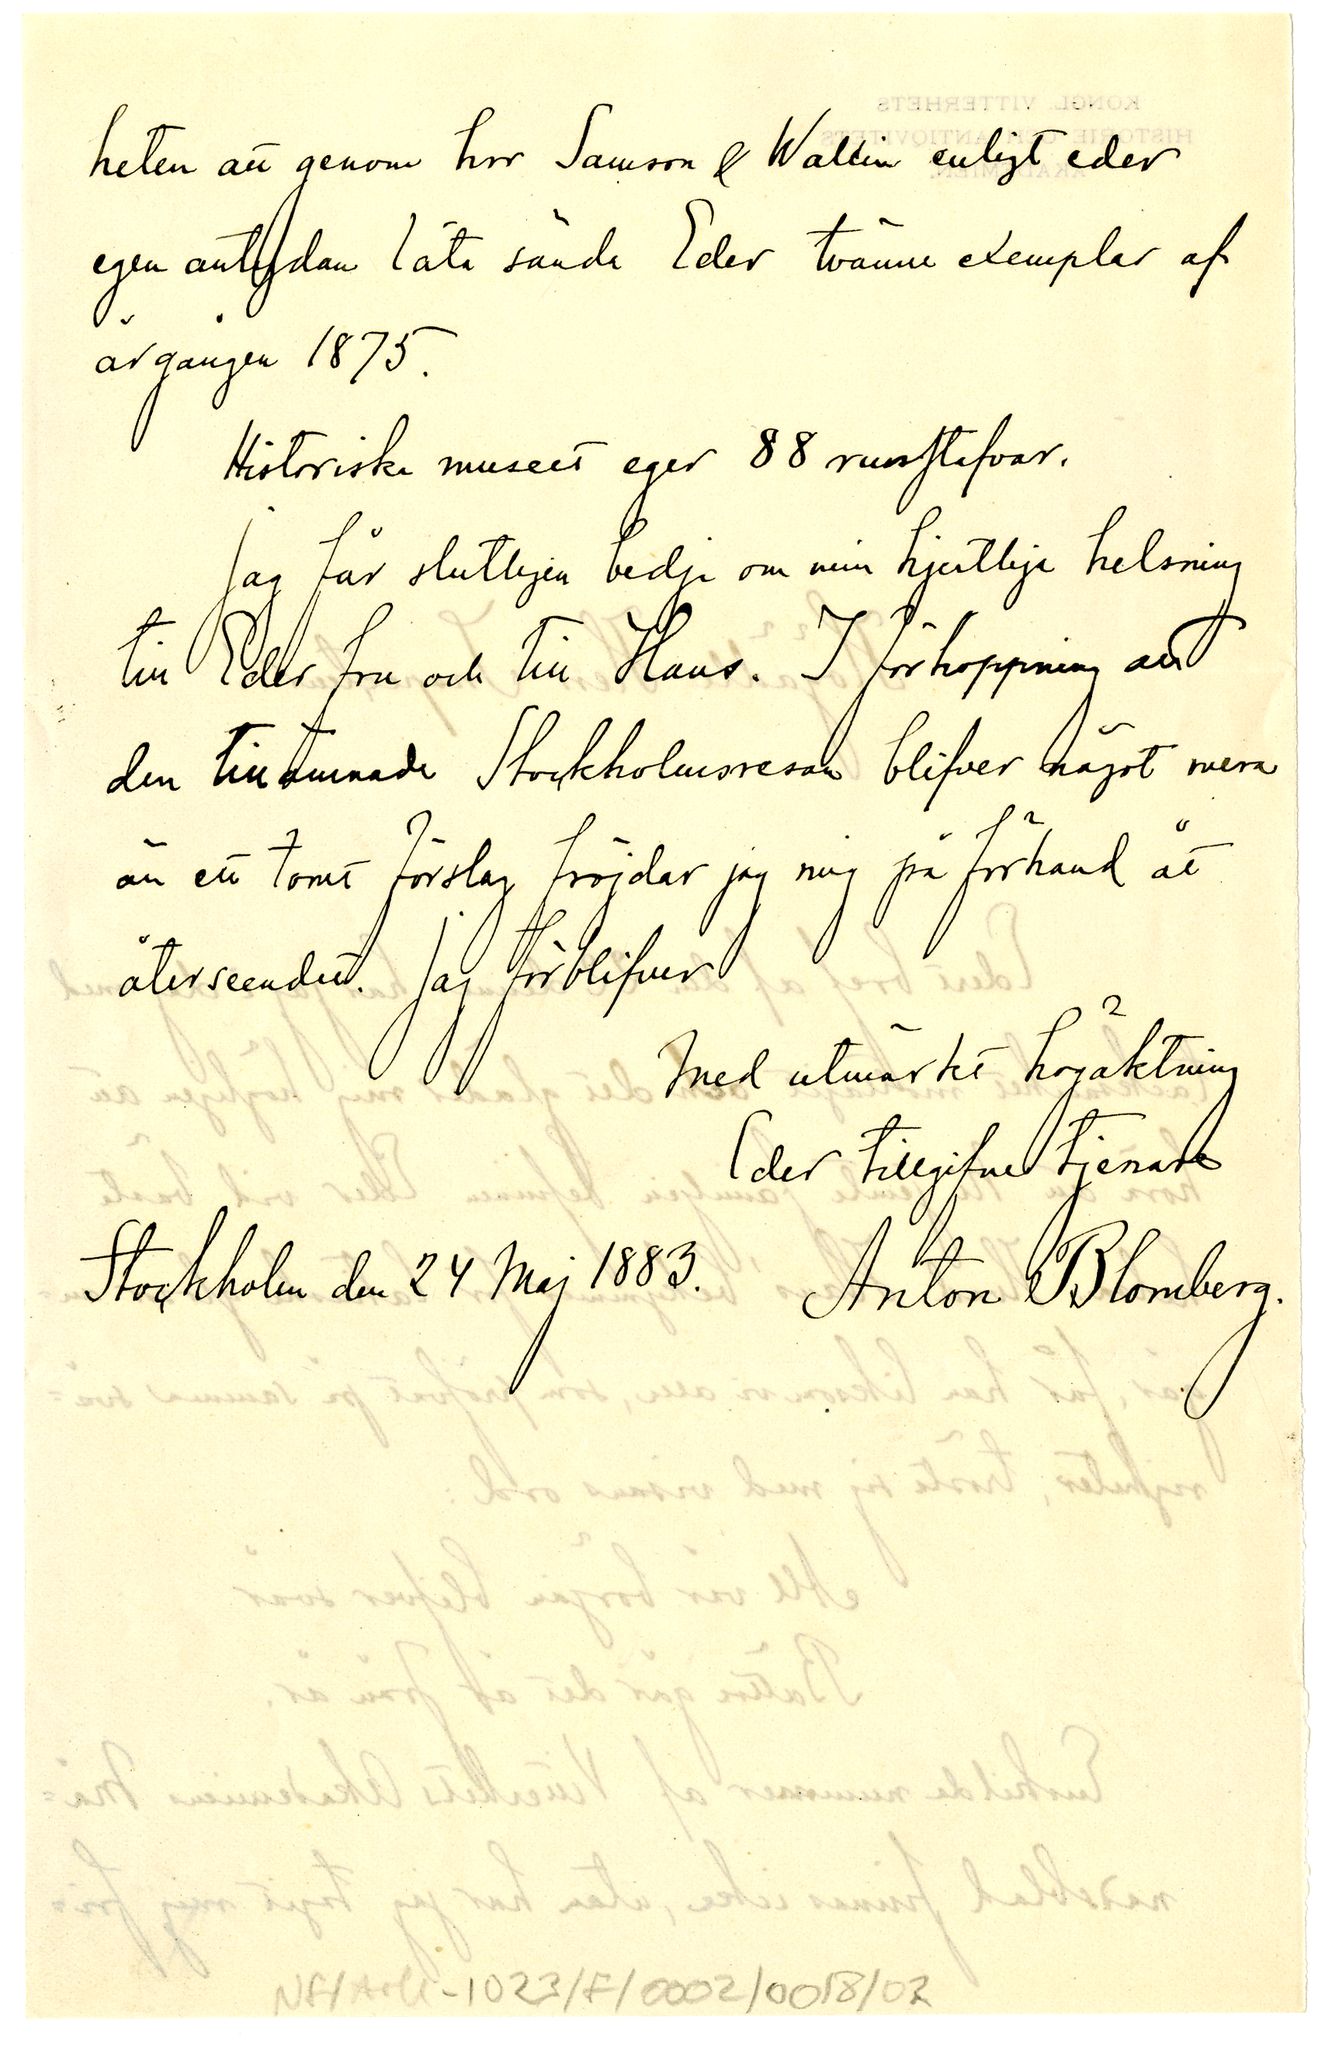 heten att genom hrr Samson & Wallin enligt eder
egen antydan låta sända Eder tvänne exemplar af
årgången 1875.
Historiska museet eger 88 runstafvar.
Jag får slutligen bedja om min hjertliga helsning
till Eder fru och till Hans. I förhoppning att
den tillämnade Stockholmsresan blifver något mera
än ett tomt förslag fröjdar jag mig på förhand åt
återseendet. Jag förblifver
Med utmärkt högaktning
Eder tillgifne tjenare
Stockholm den 24 Maj 1883. Anton Blomberg.
NF/Ark-1023/F/0002/0018/02